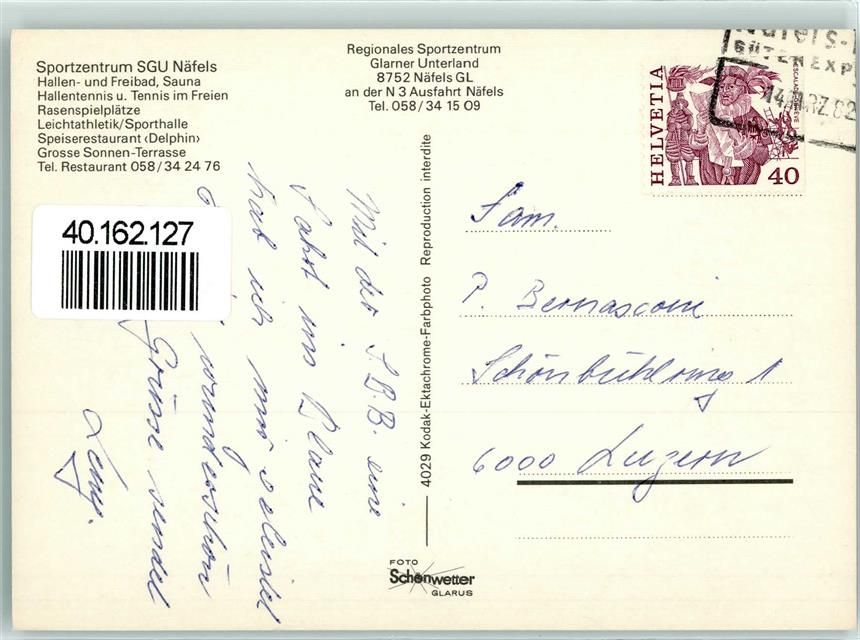 Sportzentrum SGU Näfels
Hallen- und Freibad, Sauna
Hallentennis u. Tennis im Freien
Rasenspielplätze
Leichtathletik/Sporthalle
Speiserestaurant ‹Delphin›
Grosse Sonnen-Terrasse
Tel. Restaurant 058/34 24 76
Regionales Sportzentrum
Glarner Unterland
8752 Näfels GL
an der N 3 Ausfahrt Näfels
Tel. 058/34 15 09
HELVETIA
40
Näfels-
GÜTEREXP
14. MRZ. 82
40.162.127
Mit der S.B.B. eine
Fahrt ins Blaue
hab ich mir
wunderschön
Grüsse sendet
4029 Kodak-Ektachrome-Farbphoto Reproduction interdite
Fam.
P. Bernasconi
Schönbühlring 1
6000 Luzern
FOTO
Schönwetter
GLARUS